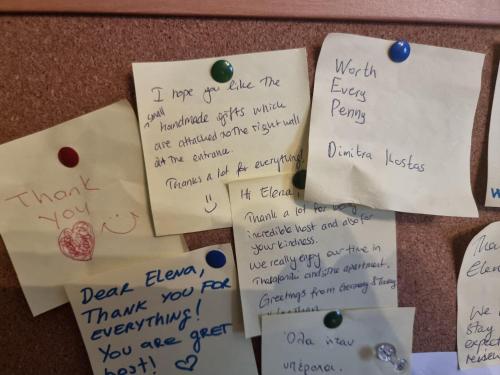 Thank
You
I hope you like the
small
handmade gifts which
are attached to the right wall
at the entrance.
Thanks a lot for everything!
Worth
Every
Penny
Dimitra Kostas
Hi Elena,
Thank a lot for being
incredible host and also for
your kindness.
We really enjoy our time in
and the apartment.
Greetings from Germany &
DEAR ELENA,
THANK YOU FOR
EVERYTHING!
YOU ARE GRET
host!
Όλα ήταν
υπέροχα.
Elen
We
stay
expect